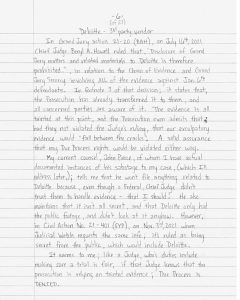 -6-
(of 21)
Deloitte - 3rd party vendor
In Grand Jury action 21-20 (BAH), on July 16th, 2021
Chief Judge Beryl A. Howell ruled that, "Disclosure of Grand
Jury matters and related materials to Deloitte is therefore
prohibited", in relation to the Chain of Evidence and Grand
Jury Secrecy involving ALL of the evidence against Jan 6th
defendants. In footnote 7 of that decision, it states that,
the Prosecution has already transferred it to them, and
all concerned parties are aware of it. The evidence is all
tainted at this point, and the Prosecution even admits that
had they not violated the Judge's ruling, that our exculpatory
evidence would "fall between the cracks". A solid assurance
that my Due Process rights would be violated either way.
My current counsel, John Pierce, of whom I have actual
documented instances of his sabotage to my case, (which I'll
address later,) tells me that he wont file anything related to
Deloitte because, even though a Federal, Chief Judge didn't
trust them to handle evidence - that I should. He also
maintains that it isn't all secret, and that Deloitte only had
the public footage, and didn't look at it anyhow. However,
in Civil Action No. 21-401 (EYD), on Nov. 1st, 2021 when
Judicial Watch requests the same info, it's ruled as being
secret from the public, which would include Deloitte.
It seems to me, like a Judge, who's duties include
making sure a trial is fair, if that Judge knows that the
prosecution is relying on tainted evidence; Due Process is
DENIED.